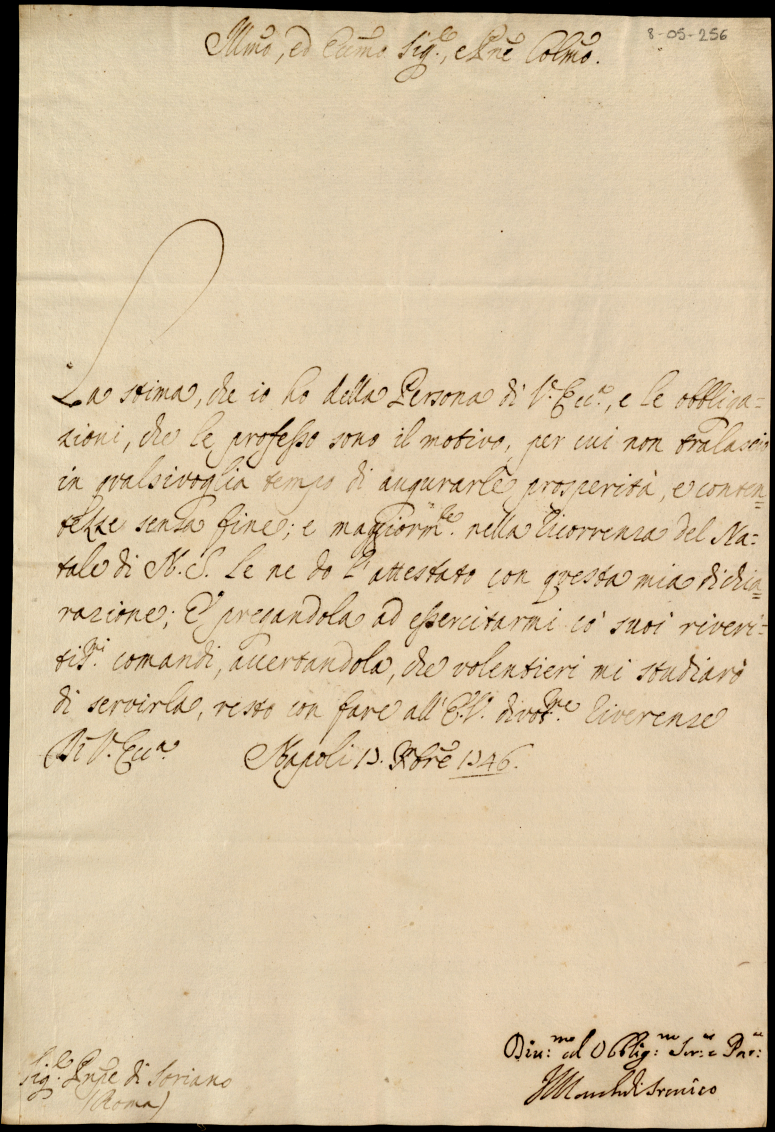 8-05-256
Illmo, ed Eccmo Sig.re, e Pne Colmo.
La stima, che io ho della Persona di V. Ecc.a, e le obbliga=
zioni, che le professo sono il motivo, per cui non tralascio
in qualsivoglia tempo di augurarle prosperità, e conten=
tezze senza fine; e maggiorm.te nella ricorrenza del Na=
tale di N. S. Le ne do l'attestato con questa mia dichia=
razione; E pregandola ad essercitarmi co' suoi riveri=
tis.mi comandi, accertandola, che volentieri mi studiarò
di servirla, resto con fare all'E. V. divot.me riverenze
Di V. Ecc.a Napoli 17. Xbre 1746.
Sig.re Pnpe di Soriano
(Roma)
Div.mo ed Obblig.mo Ser.e e Par.e